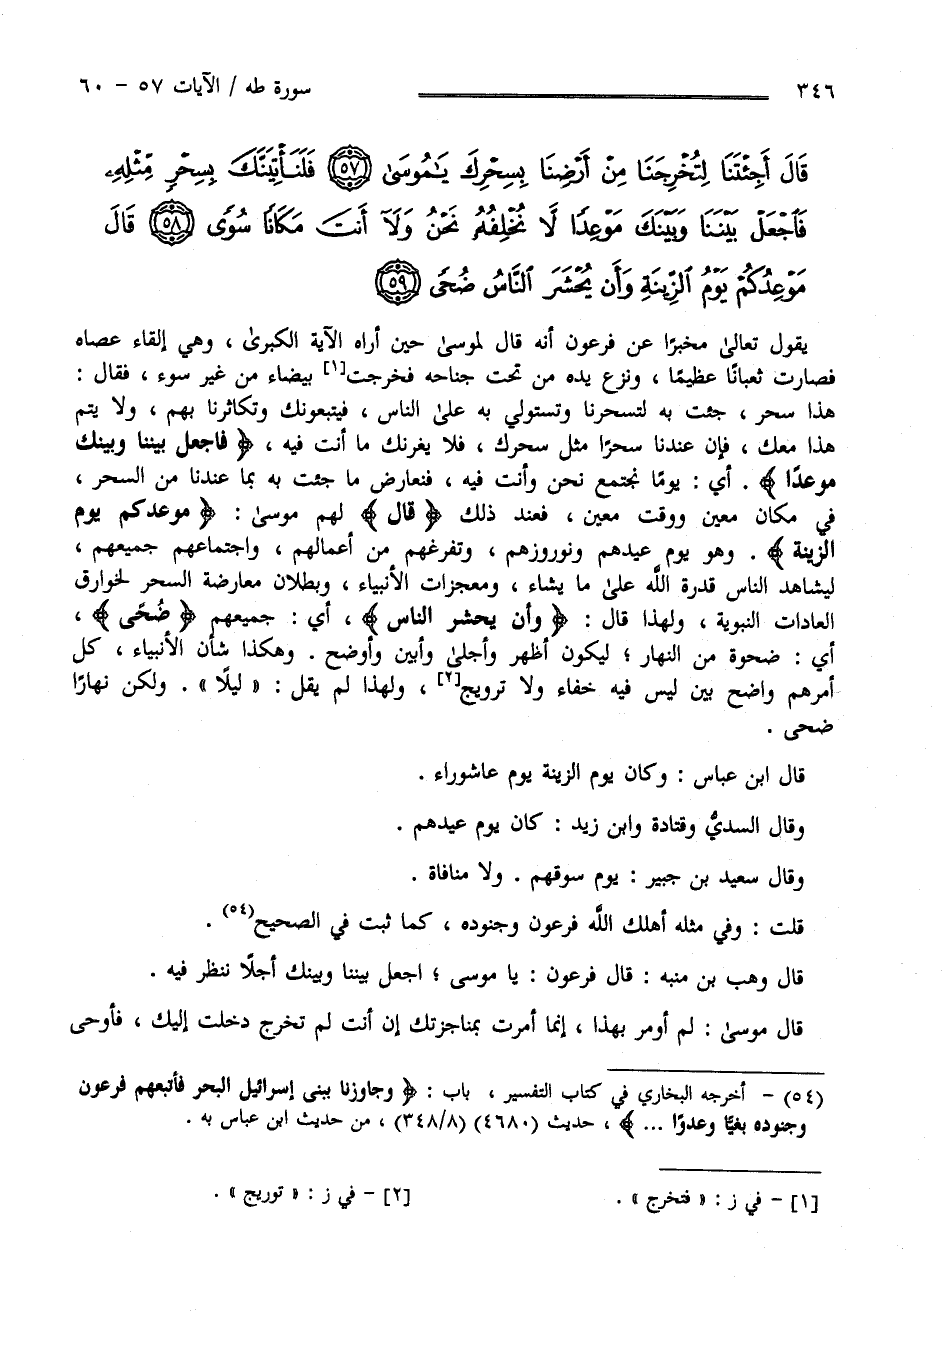 ٣٤٦ سورة طه / الآيات ٥٧ - ٦٠
قَالَ أَجِئْتَنَا لِتُخْرِجَنَا مِنْ أَرْضِنَا بِسِحْرِكَ يَٰمُوسَىٰ ﴿٥٧﴾ فَلَنَأْتِيَنَّكَ بِسِحْرٍ مِّثْلِهِۦ
فَٱجْعَلْ بَيْنَنَا وَبَيْنَكَ مَوْعِدًا لَّا نُخْلِفُهُۥ نَحْنُ وَلَآ أَنتَ مَكَانًا سُوًى ﴿٥٨﴾ قَالَ
مَوْعِدُكُمْ يَوْمُ ٱلزِّينَةِ وَأَن يُحْشَرَ ٱلنَّاسُ ضُحًى ﴿٥٩﴾
يقول تعالىٰ مخبرًا عن فرعون أنه قال لموسىٰ حين أراه الآية الكبرىٰ ، وهي إلقاء عصاه
فصارت ثعبانًا عظيمًا ، ونزع يده من تحت جناحه فخرجت[١] بيضاء من غير سوء ، فقال :
هذا سحر ، جئت به لتسحرنا وتستولي به علىٰ الناس ، فيتبعونك وتكاثرنا بهم ، ولا يتم
هذا معك ، فإن عندنا سحرًا مثل سحرك ، فلا يغرنك ما أنت فيه ، ﴿ فاجعل بيننا وبينك
موعدًا ﴾ . أي : يومًا نجتمع نحن وأنت فيه ، فنعارض ما جئت به بما عندنا من السحر ،
في مكان معين ووقت معين ، فعند ذلك ﴿ قال ﴾ لهم موسىٰ : ﴿ موعدكم يوم
الزينة ﴾ . وهو يوم عيدهم ونوروزهم ، وتفرغهم من أعمالهم ، واجتماعهم جميعهم ،
ليشاهد الناس قدرة اللَّه علىٰ ما يشاء ، ومعجزات الأنبياء ، وبطلان معارضة السحر لخوارق
العادات النبوية ، ولهذا قال : ﴿ وأن يحشر الناس ﴾ ، أي : جميعهم ﴿ ضُحًى ﴾ ،
أي : ضحوة من النهار ؛ ليكون أظهر وأجلىٰ وأبين وأوضح . وهكذا شأن الأنبياء ، كل
أمرهم واضح بين ليس فيه خفاء ولا ترويج[٢] ، ولهذا لم يقل : « ليلًا » . ولكن نهارًا
ضحى .
قال ابن عباس : وكان يوم الزينة يوم عاشوراء .
وقال السديُّ وقتادة وابن زيد : كان يوم عيدهم .
وقال سعيد بن جبير : يوم سوقهم . ولا منافاة .
قلت : وفي مثله أهلك اللَّه فرعون وجنوده ، كما ثبت في الصحيح(٥٤) .
قال وهب بن منبه : قال فرعون : يا موسى ؛ اجعل بيننا وبينك أجلًا ننظر فيه .
قال موسىٰ : لم أومر بهذا ، إنما أمرت بمناجزتك إن أنت لم تخرج دخلت إليك ، فأوحى
(٥٤) - أخرجه البخاري في كتاب التفسير ، باب : ﴿ وجاوزنا ببنى إسرائيل البحر فأتبعهم فرعون
وجنوده بغيًا وعدوًا ... ﴾ ، حديث (٤٦٨٠) (٣٤٨/٨) ، من حديث ابن عباس به .
[١] - في ز : « فتخرج » . [٢] - في ز : « توريج » .